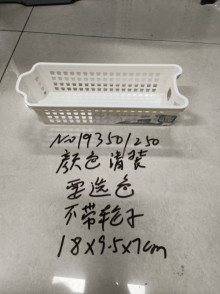 No193501250
颜色清装
要选色
不带毛子
18X9.5X7cm